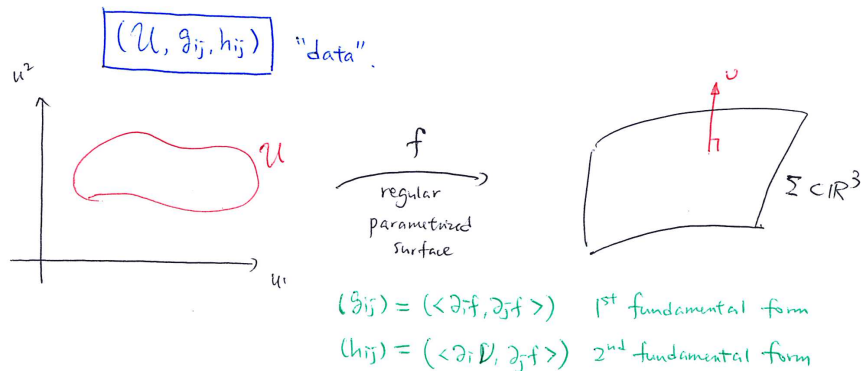 (U, gij, hij) "data".
u²
U
f
ν
regular
parametrized
surface
Σ ⊂ ℝ³
u₁
(gij) = (<∂if, ∂jf>) 1st fundamental form
(hij) = (<∂iν, ∂jf>) 2nd fundamental form